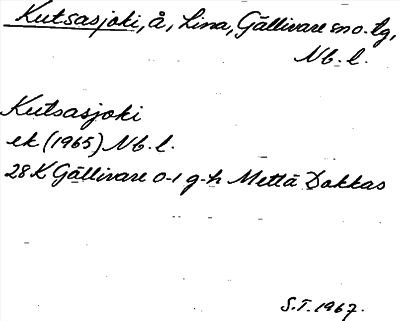 Kutsasjoki, å, Lina, Gällivare sn o. tg,
Nb. l.
Kutsasjoki
ek (1965) Nb. l.
28 K Gällivare 0-1 g-h Mettä Dokkas
S.T. 1967.